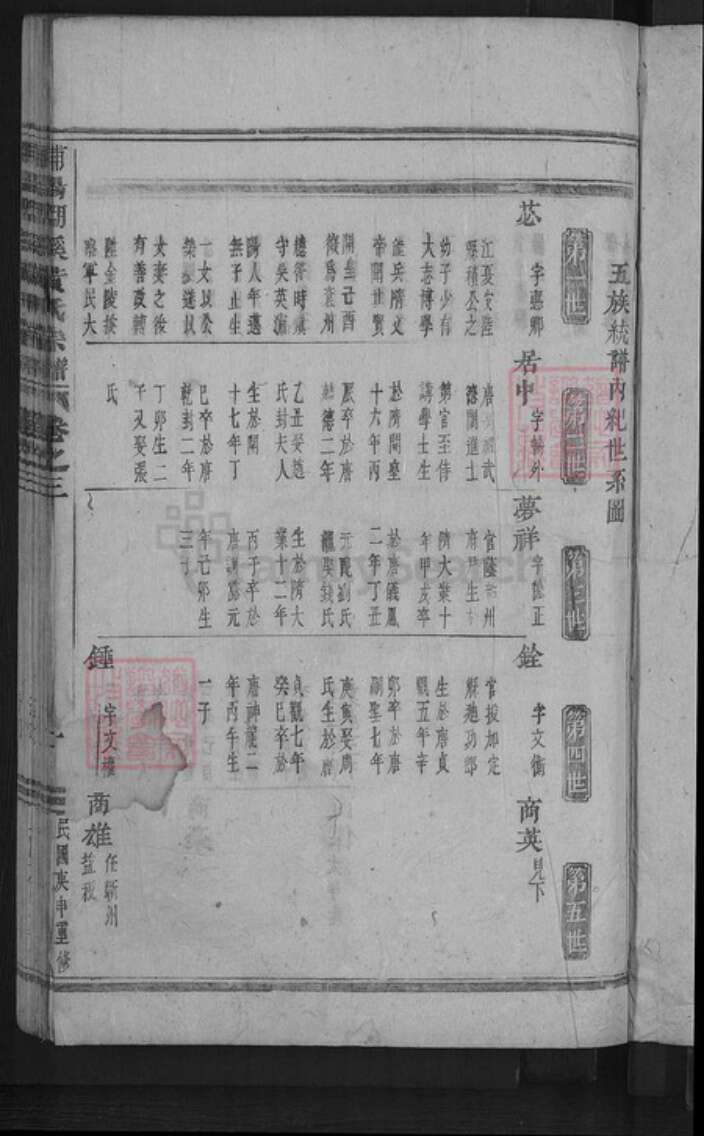 五族統譜內紀世系圖
第一世
第二世
第三世
第四世
第五世
苾
字惠卿
江夏安陸
縣積公之
幼子少有
大志博學
能兵隋文
帝開世賢
開皇己酉
徵為袁州
總管時鎮
守吳英濟
陽人年邁
無子止生
一女以公
女妻之後
有善政轉
陞金陵接
略軍民大
居中
字暢外
德間進士
第官至侍
講學士生
於隋開皇
十六年丙
辰卒於唐
麟德二年
乙丑娶趙
氏封夫人
生於開
十七年丁
巳卒於唐
乾封二年
丁卯生二
子又娶張
氏
夢祥
字徵正
隋大業十
年甲戌卒
於唐儀鳳
二年丁丑
元配劉氏
繼娶錢氏
生於隋大
業十二年
丙子卒於
唐調露元
年己卯生
三子
銓
字文衡
官授加定
縣迪功郎
生於唐貞
觀五年辛
卯卒於唐
嗣聖七年
庚寅娶周
氏生於唐
貞觀七年
癸巳卒於
唐神龍二
年丙午生
一子
鍾
字文權
商英
見下
商雄
任蘄州
浦陽湖溪黃氏宗譜
卷之三
一
民國庚申重修